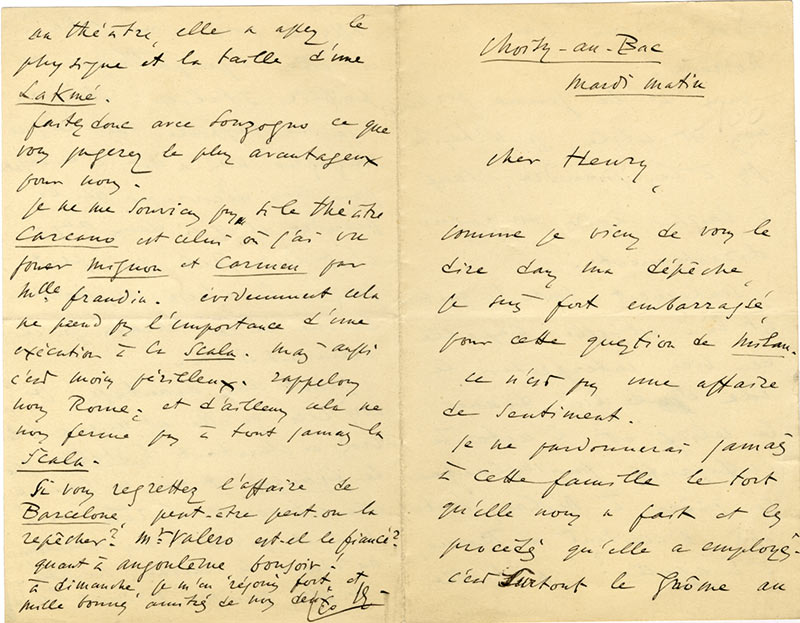 Choisy-au-Bac
mardi matin
cher Henry,
comme je viens de vous le
dire dans ma dépêche,
je suis fort embarrassé
pour cette question de Milan.
ce n'est pas une affaire
de sentiment.
Je ne pardonnerai jamais
à cette famille le tort
qu'elle nous a fait et les
procédés qu'elle a employés.
c'est surtout le Gnôme au
au théâtre, elle a assez le
physique et la taille d'une
Lakmé.
faites donc avec Sonzogno ce que
vous jugerez le plus avantageux
pour nous.
je ne me souviens pas si le théâtre
Carcano est celui où j'ai vu
jouer Mignon et Carmen par
Mlle frandin. évidemment cela
ne prend pas l'importance d'une
exécution à la Scala. mais aussi
c'est moins périlleux. rappelons
nous Rome; et d'ailleurs cela ne
nous ferme pas à tout jamais la
Scala.
Si vous regrettez l'affaire de
Barcelone, peut-être peut-on la
repêcher? Mr Valero est-il le fiancé?
quant à angoulême bonsoir!
à dimanche, je m'en réjouis fort et
mille bonnes amitiés de nos deux